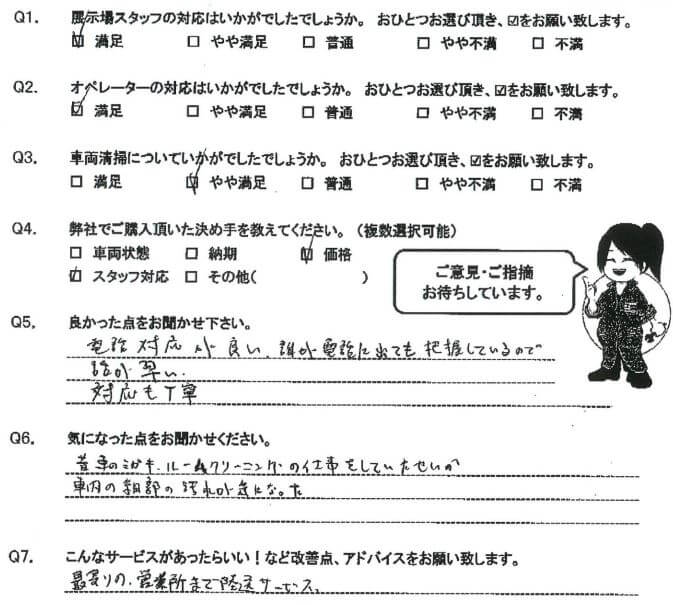 Q1. 展示場スタッフの対応はいかがでしたでしょうか。 おひとつお選び頂き、☑をお願い致します。
☑ 満足 □ やや満足 □ 普通 □ やや不満 □ 不満
Q2. オペレーターの対応はいかがでしたでしょうか。 おひとつお選び頂き、☑をお願い致します。
☑ 満足 □ やや満足 □ 普通 □ やや不満 □ 不満
Q3. 車両清掃についていかがでしたでしょうか。 おひとつお選び頂き、☑をお願い致します。
□ 満足 ☑ やや満足 □ 普通 □ やや不満 □ 不満
Q4. 弊社でご購入頂いた決め手を教えてください。（複数選択可能）
□ 車両状態 □ 納期 ☑ 価格
☑ スタッフ対応 □ その他( )
ご意見・ご指摘
お待ちしています。
Q5. 良かった点をお聞かせ下さい。
電話対応が良い、誰が電話に出ても把握しているので
話が早い、
対応も丁寧
Q6. 気になった点をお聞かせください。
昔車のミガキ、ルームクリーニングの仕事をしていたせいか
車内の細部の汚れが気になった
Q7. こんなサービスがあったらいい！など改善点、アドバイスをお願い致します。
最寄りの、営業所まで陸送サービス、